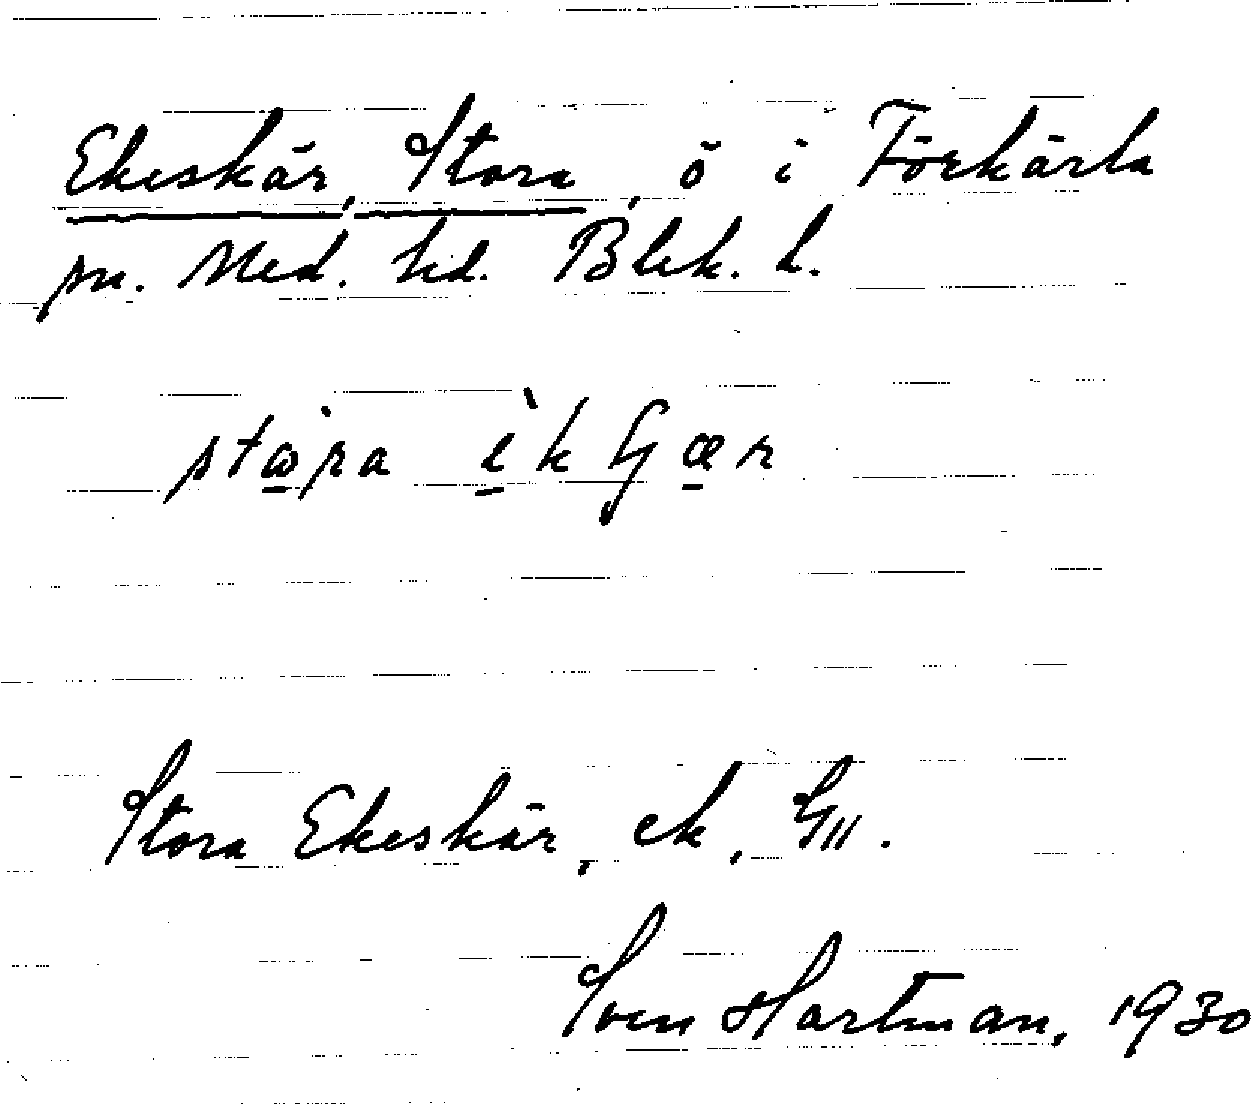 Ekeskär, Stora, ö i Förkärla
sn. Med. hd. Blek. l.
Stora Ekeskär, ek,
Sven Hartman, 1930